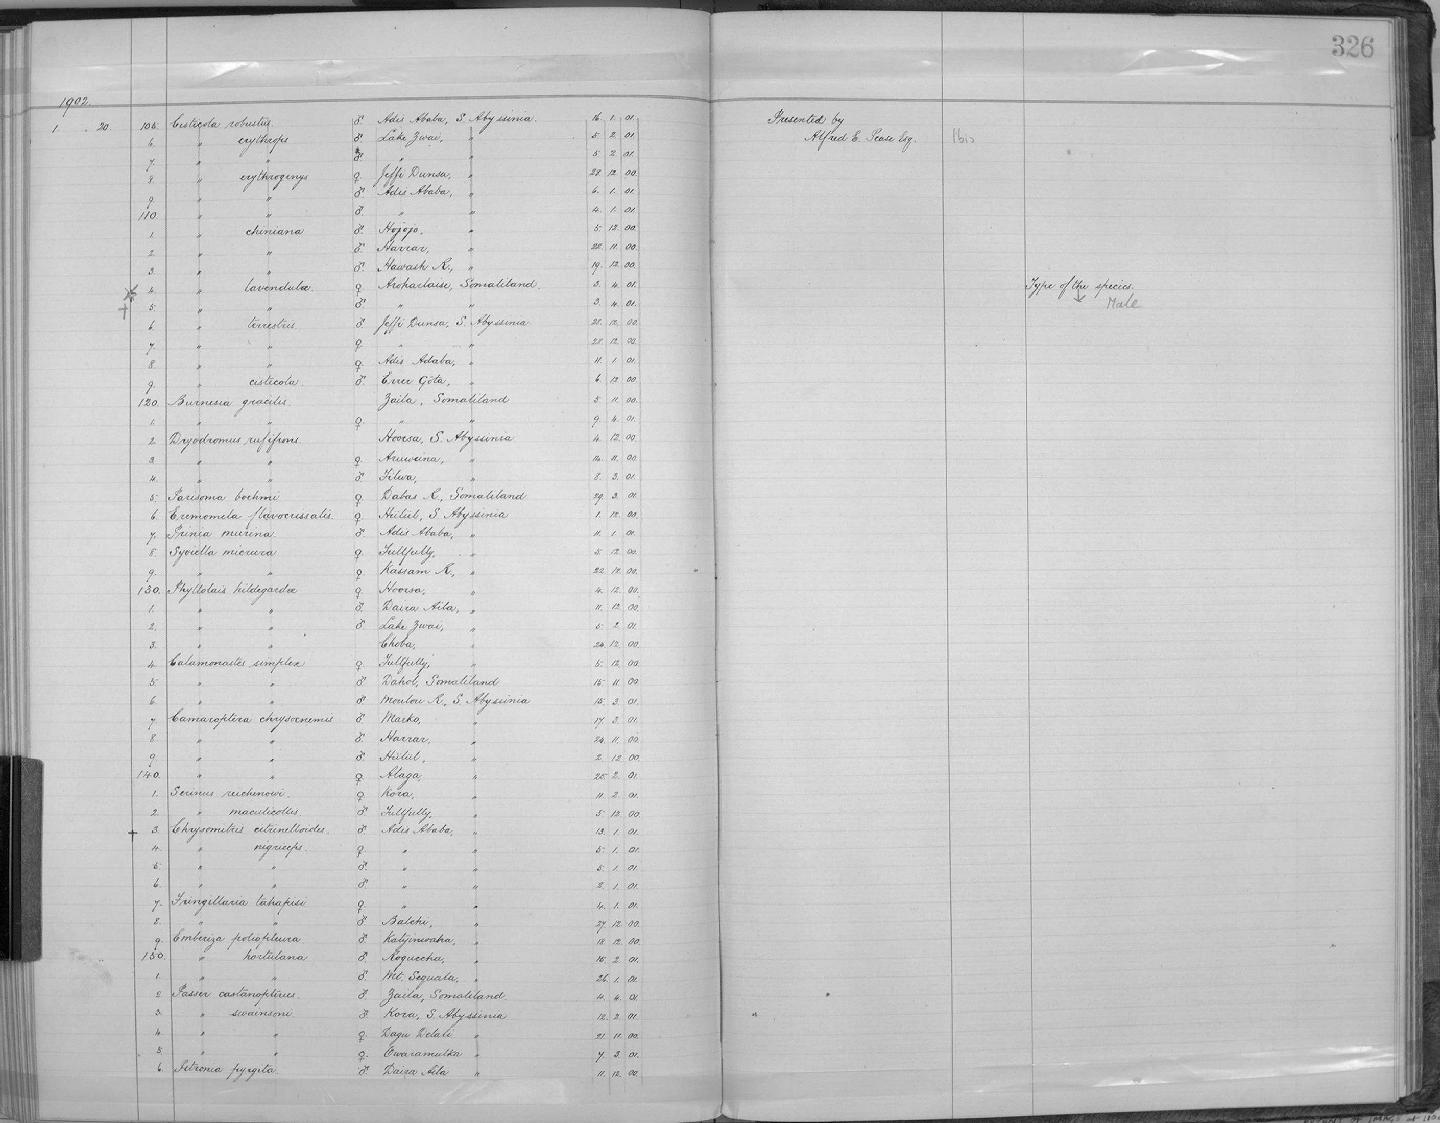 326
1902.
1. . 20. 105. Cisticola robustus. ♂ Adis Ababa, S. Abyssinia. 16. 1. 01. Presented by
6. " erythrops ♂ Lake Zwai, " 5. 2. 01. Alfred E. Pease Esq.
7. " " ♂ " " 5. 2. 01.
8. " erythrogenys ♀ Jeffi Dunsa, " 28. 12. 00.
9. " " ♂ Adis Ababa, " 6. 1. 01.
110. " " ♂ " " 4. 1. 01.
1. " chiniana ♂ Hojojo, " 5. 12. 00.
2. " " ♂ Harrar, " 22. 11. 00.
3. " " ♂ Hawash R., " 19. 12. 00.
4. " lavendulæ. ♀ Arohartaise, Somaliland. 3. 4. 01. Type of the species.
5. " " ♂ " " 3. 4. 01. Male
6. " terrestris. ♂ Jeffi Dunsa, S. Abyssinia 28. 12. 00.
7. " " ♀ " " 28. 12. 00.
8. " " ♀ Adis Ababa, " 11. 1. 01.
9. " cisticola. ♂ Errer Gôta, " 6. 12. 00.
120. Burnesia gracilis. Zaila, Somaliland 5. 11. 00.
1. " " ♀ " " 9. 4. 01.
2. Dryodromus rufifrons. Hoorsa, S. Abyssinia 4. 12. 00.
3. " " ♀ Aruweina, " 14. 11. 00.
4. " " ♂ Filwa, " 8. 3. 01.
5. Parisoma boehmi ♀ Dabas R., Somaliland 29. 3. 01.
6. Eremomela flavocrissalis. ♀ Hêlêl, S. Abyssinia 1. 12. 00.
7. Prinia murina. ♂ Adis Ababa, " 11. 1. 01.
8. Sylviella micrura ♀ Fullfully, " 5. 12. 00.
9. " " ♀ Kassam R., " 22. 12. 00.
130. Phyllolais hildegardæ ♀ Hoorsa, " 4. 12. 00.
1. " " ♂ Daira Aila, " 11. 12. 00.
2. " " ♂ Lake Zwai, " 5. 2. 01.
3. " " Choba, " 24. 12. 00.
4. Calamonastes simplex ♀ Fullfully, " 5. 12. 00.
5. " " ♂ Dahol, Somaliland 15. 11. 00.
6. " " ♂ Moulou R., S. Abyssinia 15. 3. 01.
7. Camaroptera chrysocnemis ♂ Marko, " 17. 2. 01.
8. " " ♂ Harrar, " 24. 11. 00.
9. " " ♂ Hêlêl, " 2. 12. 00.
140. " " ♀ Alaga, " 25. 2. 01.
1. Serinus reichenowi. ♀ Kora, " 11. 2. 01.
2. " maculicollis. ♂ Fullfully, " 5. 12. 00.
3. Chrysomitris citrinelloides. ♂ Adis Ababa, " 13. 1. 01.
4. " nigriceps. ♀ " " 5. 1. 01.
5. " " ♂ " " 5. 1. 01.
6. " " ♂ " " 2. 1. 01.
7. Fringillaria tahapisi ♀ " " 4. 1. 01.
8. " " ♂ Balchi, " 27. 12. 00.
9. Emberiza poliopleura ♂ Katyinwaha, " 18. 12. 00.
150. " hortulana ♂ Roguecha, " 16. 2. 01.
1. " " ♂ Mt. Sequala, " 26. 1. 01.
2. Passer castanopterus. ♂ Zaila, Somaliland. 4. 4. 01.
3. " swainsoni ♂ Kora, S. Abyssinia 12. 2. 01.
4. " " ♀ Dagu Delali " 21. 11. 00.
5. " " ♀ Owaramulka " 7. 3. 01.
6. Petronia pyrgita. ♂ Daira Aila " 11. 12. 00.